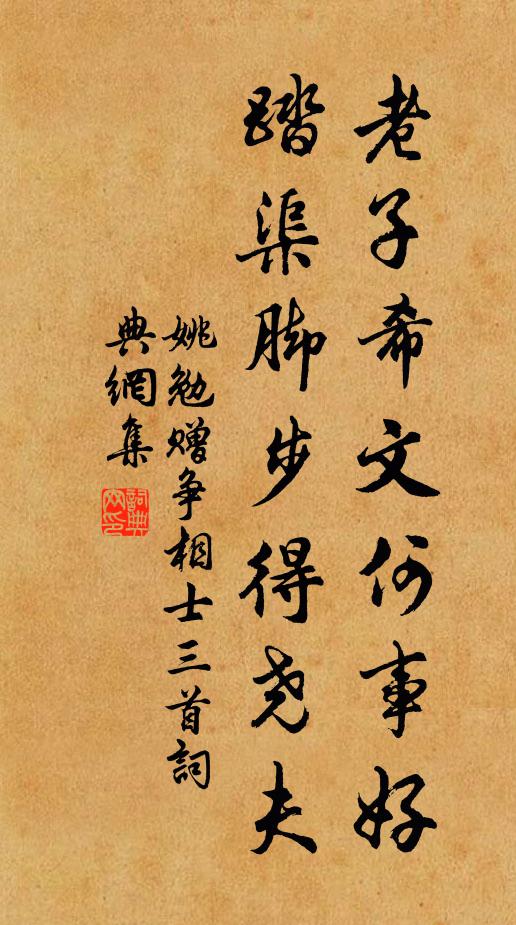 老子希文何事好
踏渠脚步得尧夫
姚勉赠争相士三首詞
典網集
詞典网印